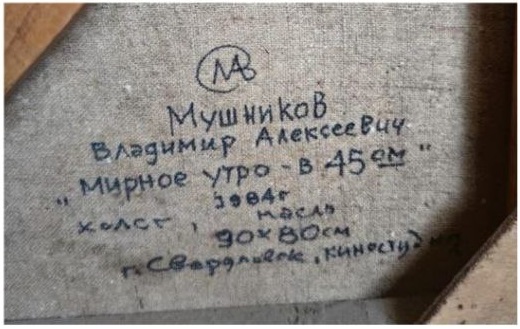 МАВ
Мушников
Владимир Алексеевич
"Мирное утро - в 45 ом"
1984г
холст, масло
90х80см
г. Свердловск, киностудия